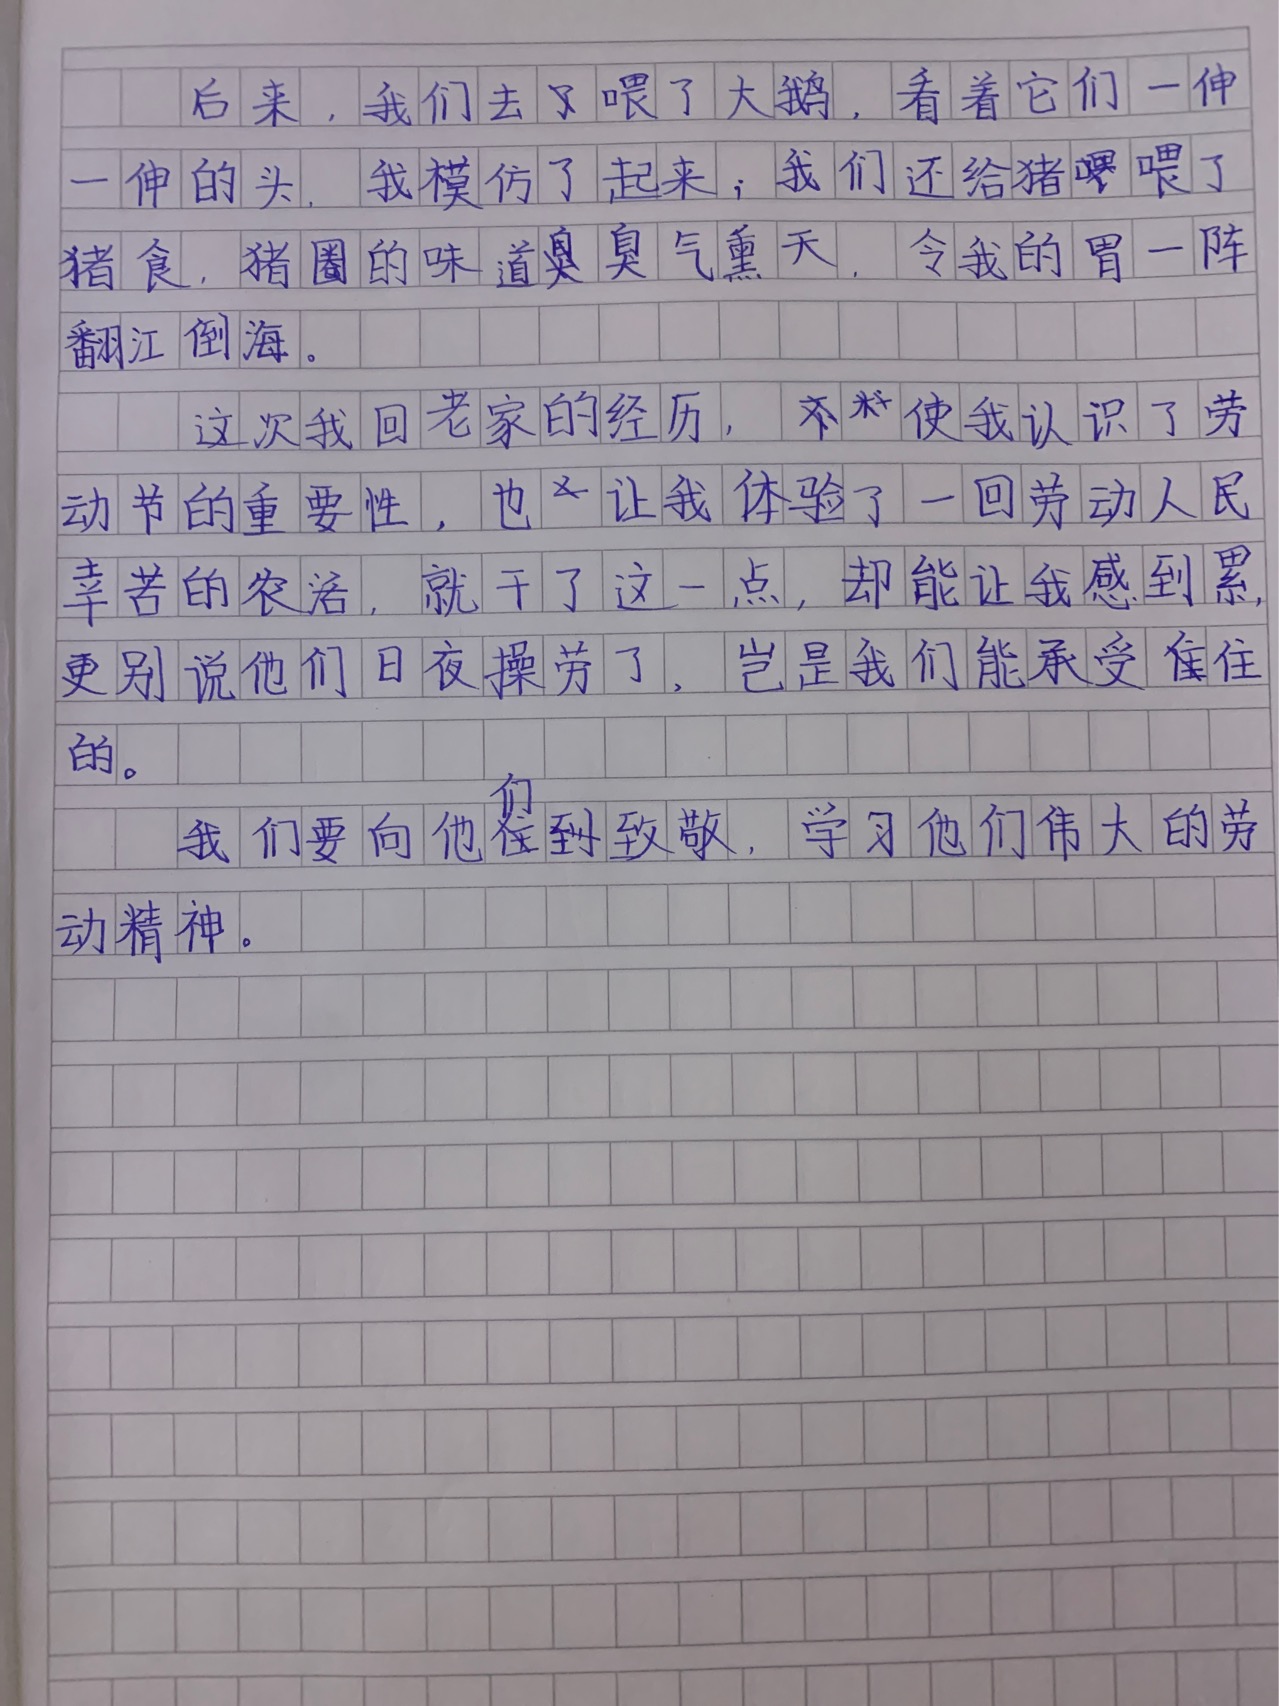 后来，我们去喂了大鹅，看着它们一伸
一伸的头，我模仿了起来；我们还给猪喂了
猪食，猪圈的味道臭气熏天，令我的胃一阵
翻江倒海。
这次我回老家的经历，不使我认识了劳
动节的重要性，也让我体验了一回劳动人民
幸苦的农活，就干了这一点，却能让我感到累，
更别说他们日夜操劳了，岂是我们能承受住
的。
我们要向他们致敬，学习他们伟大的劳
动精神。